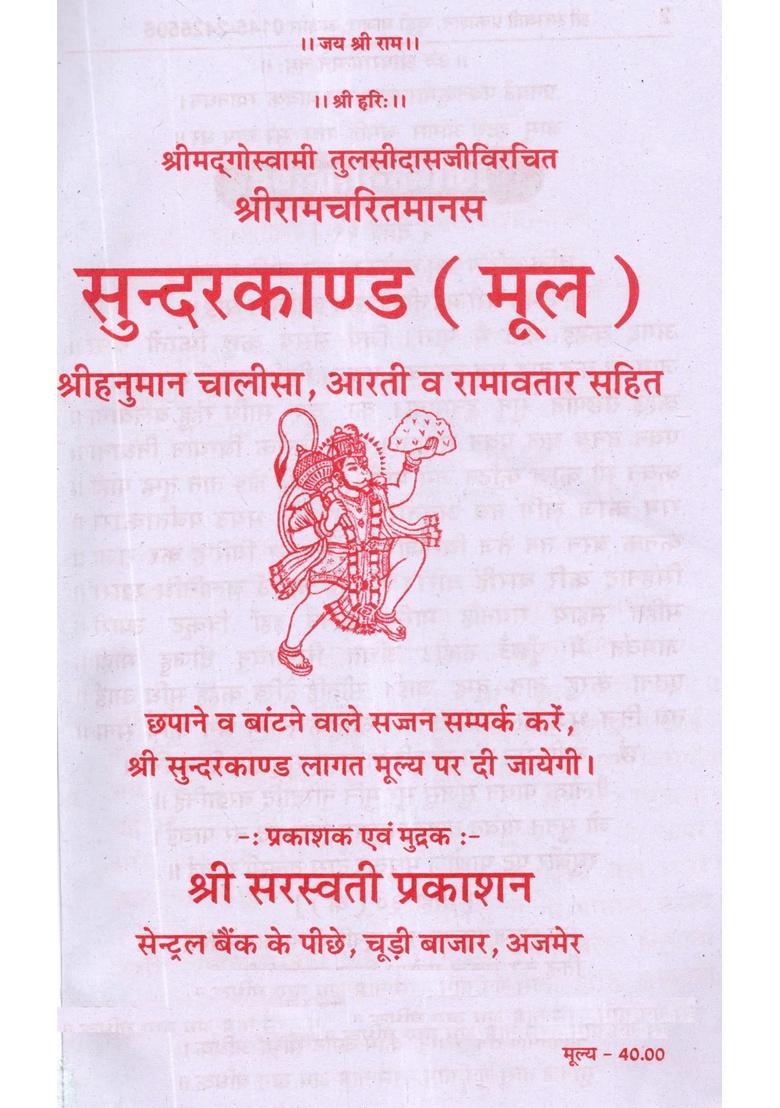 ।। जय श्री राम।।
।। श्री हरिः।।
श्रीमद्गोस्वामी तुलसीदासजीविरचित
श्रीरामचरितमानस
सुन्दरकाण्ड ( मूल )
श्रीहनुमान चालीसा, आरती व रामावतार सहित
छपाने व बांटने वाले सज्जन सम्पर्क करें,
श्री सुन्दरकाण्ड लागत मूल्य पर दी जायेगी।
-: प्रकाशक एवं मुद्रक :-
श्री सरस्वती प्रकाशन
सेन्ट्रल बैंक के पीछे, चूड़ी बाजार, अजमेर
मूल्य - 40.00